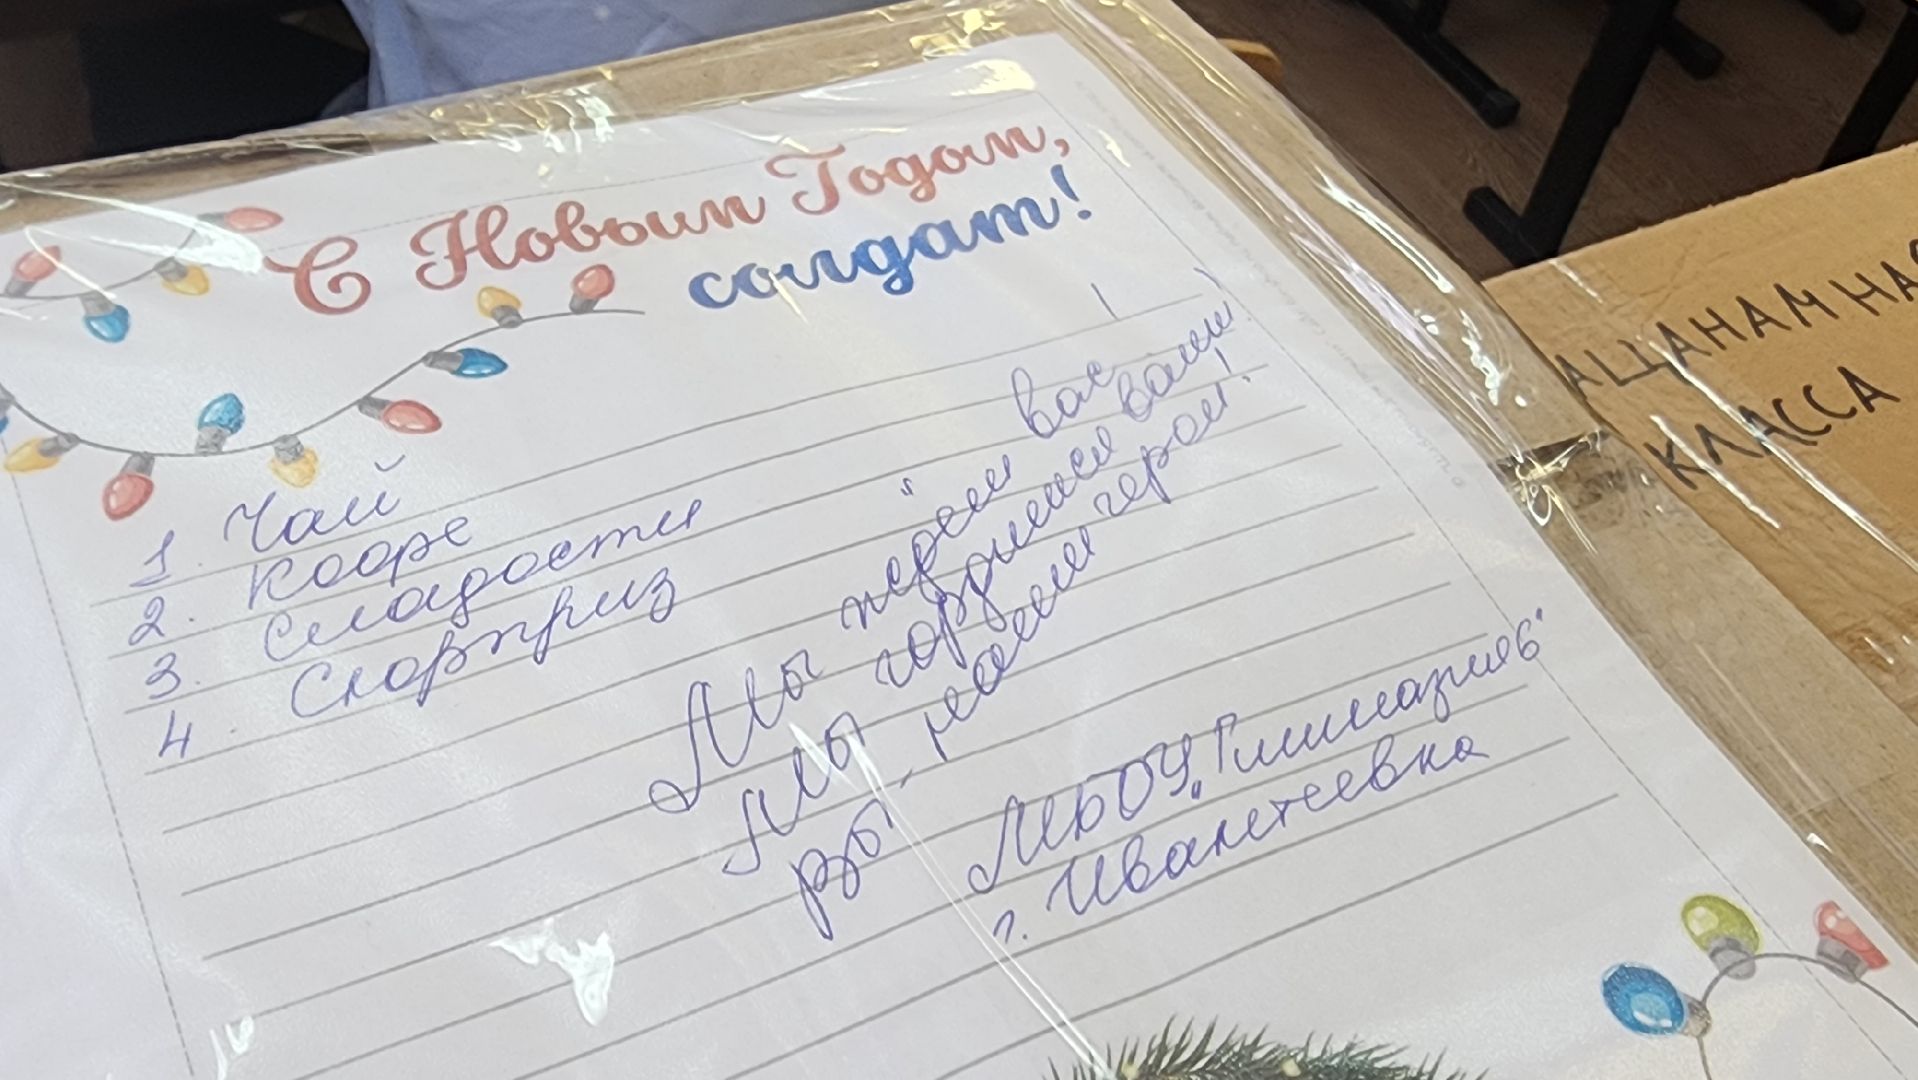 С Новым Годом,
солдат!
1. Чай
2. Кофе
3. Сладости
4. Сюрприз
Мы ждём вас!
мы гордимся вами!
ры, наши герои!
МБОУ „Гимназия 6"
г. Ивантеевка
КЛАССА